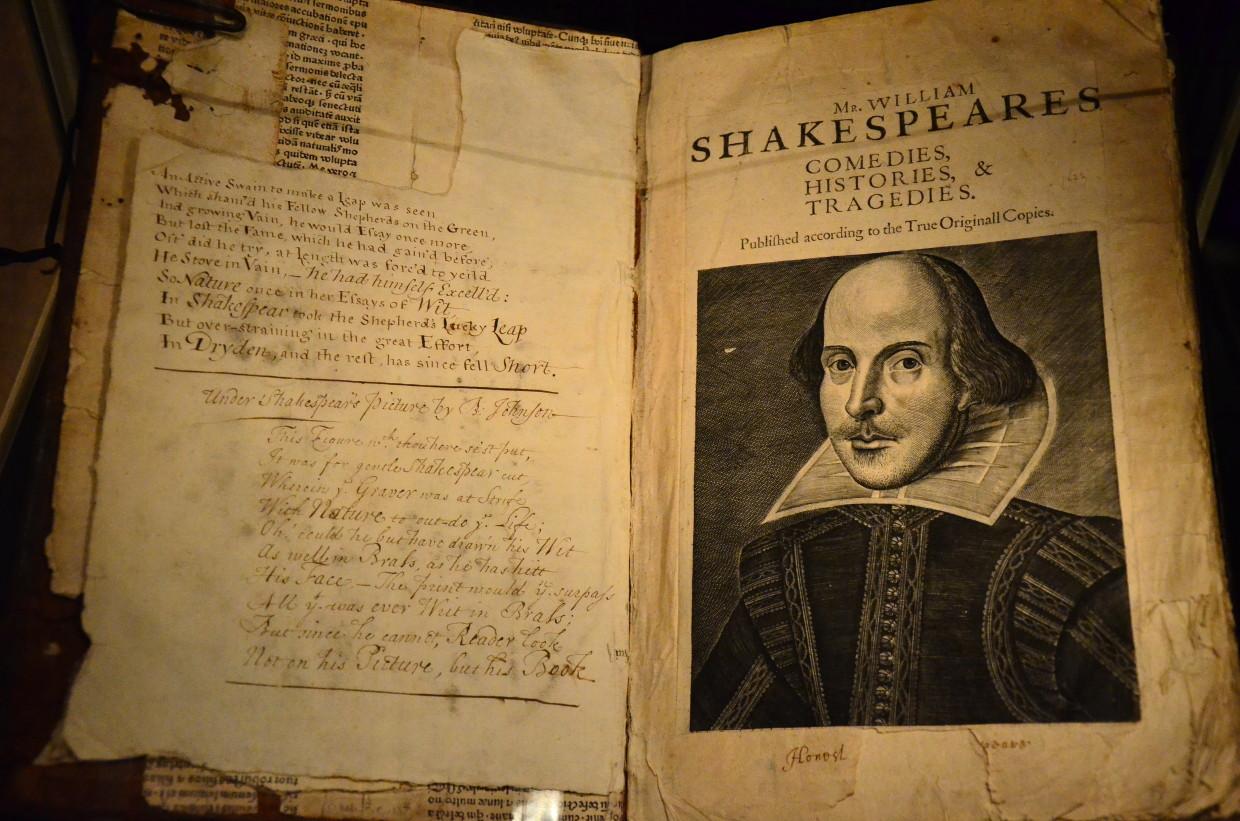 sermonibus
maiores accubationē epu
m græci · qui hoc
nationez vocant ·
id maxime
sermonis delecta
restāt ·
senectuti
auiditatē auxit
ista
vivere volu
quidem volupta
etiā nisi voluptate · Cunq
An Active Swain to make a Leap was seen
Which sham'd his Fellow Shepherds on the Green,
And growing Vain, he would Essay once more,
But lost the Fame, which he had gain'd before;
Oft' did he try, at Length was forc'd to yeild
He Stove in Vain, — he had himself Excell'd:
So Nature once in her Essays of Wit,
In Shakespear took the Shepherd's Lucky Leap
But over-straining in the great Effort,
In Dryden, and the rest, has since fell Short.
Under Shakespear's Picture by B: Johnson
This Figure wch. thou here se'st put,
It was for gentle Shakespear cut,
Wherein ye. Graver was at Strife
With Nature to out-do ye. Life;
Oh! could he but have drawn his Wit
As well in Brass, as he has hett
His Face — The print would yn. surpass
All yt. was ever Writ in Brass;
But since he cannot, Reader look
Not on his Picture, but his Book
Mr. WILLIAM
SHAKESPEARES
COMEDIES,
HISTORIES, &
TRAGEDIES.
Published according to the True Originall Copies.
Honest